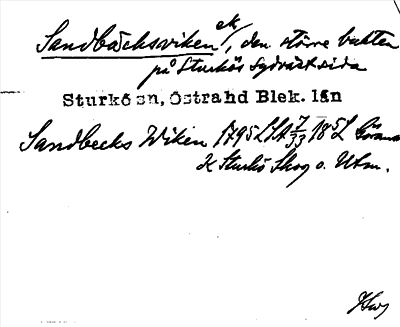 Sandbäcksviken ek/, den större bukten
på Sturkös sydvästsida
Sturkö sn, Östrahd Blek. län
Sandbecks Wiken 1795 LSA 7/33 1852
K Sturkö Skog o. Utm.